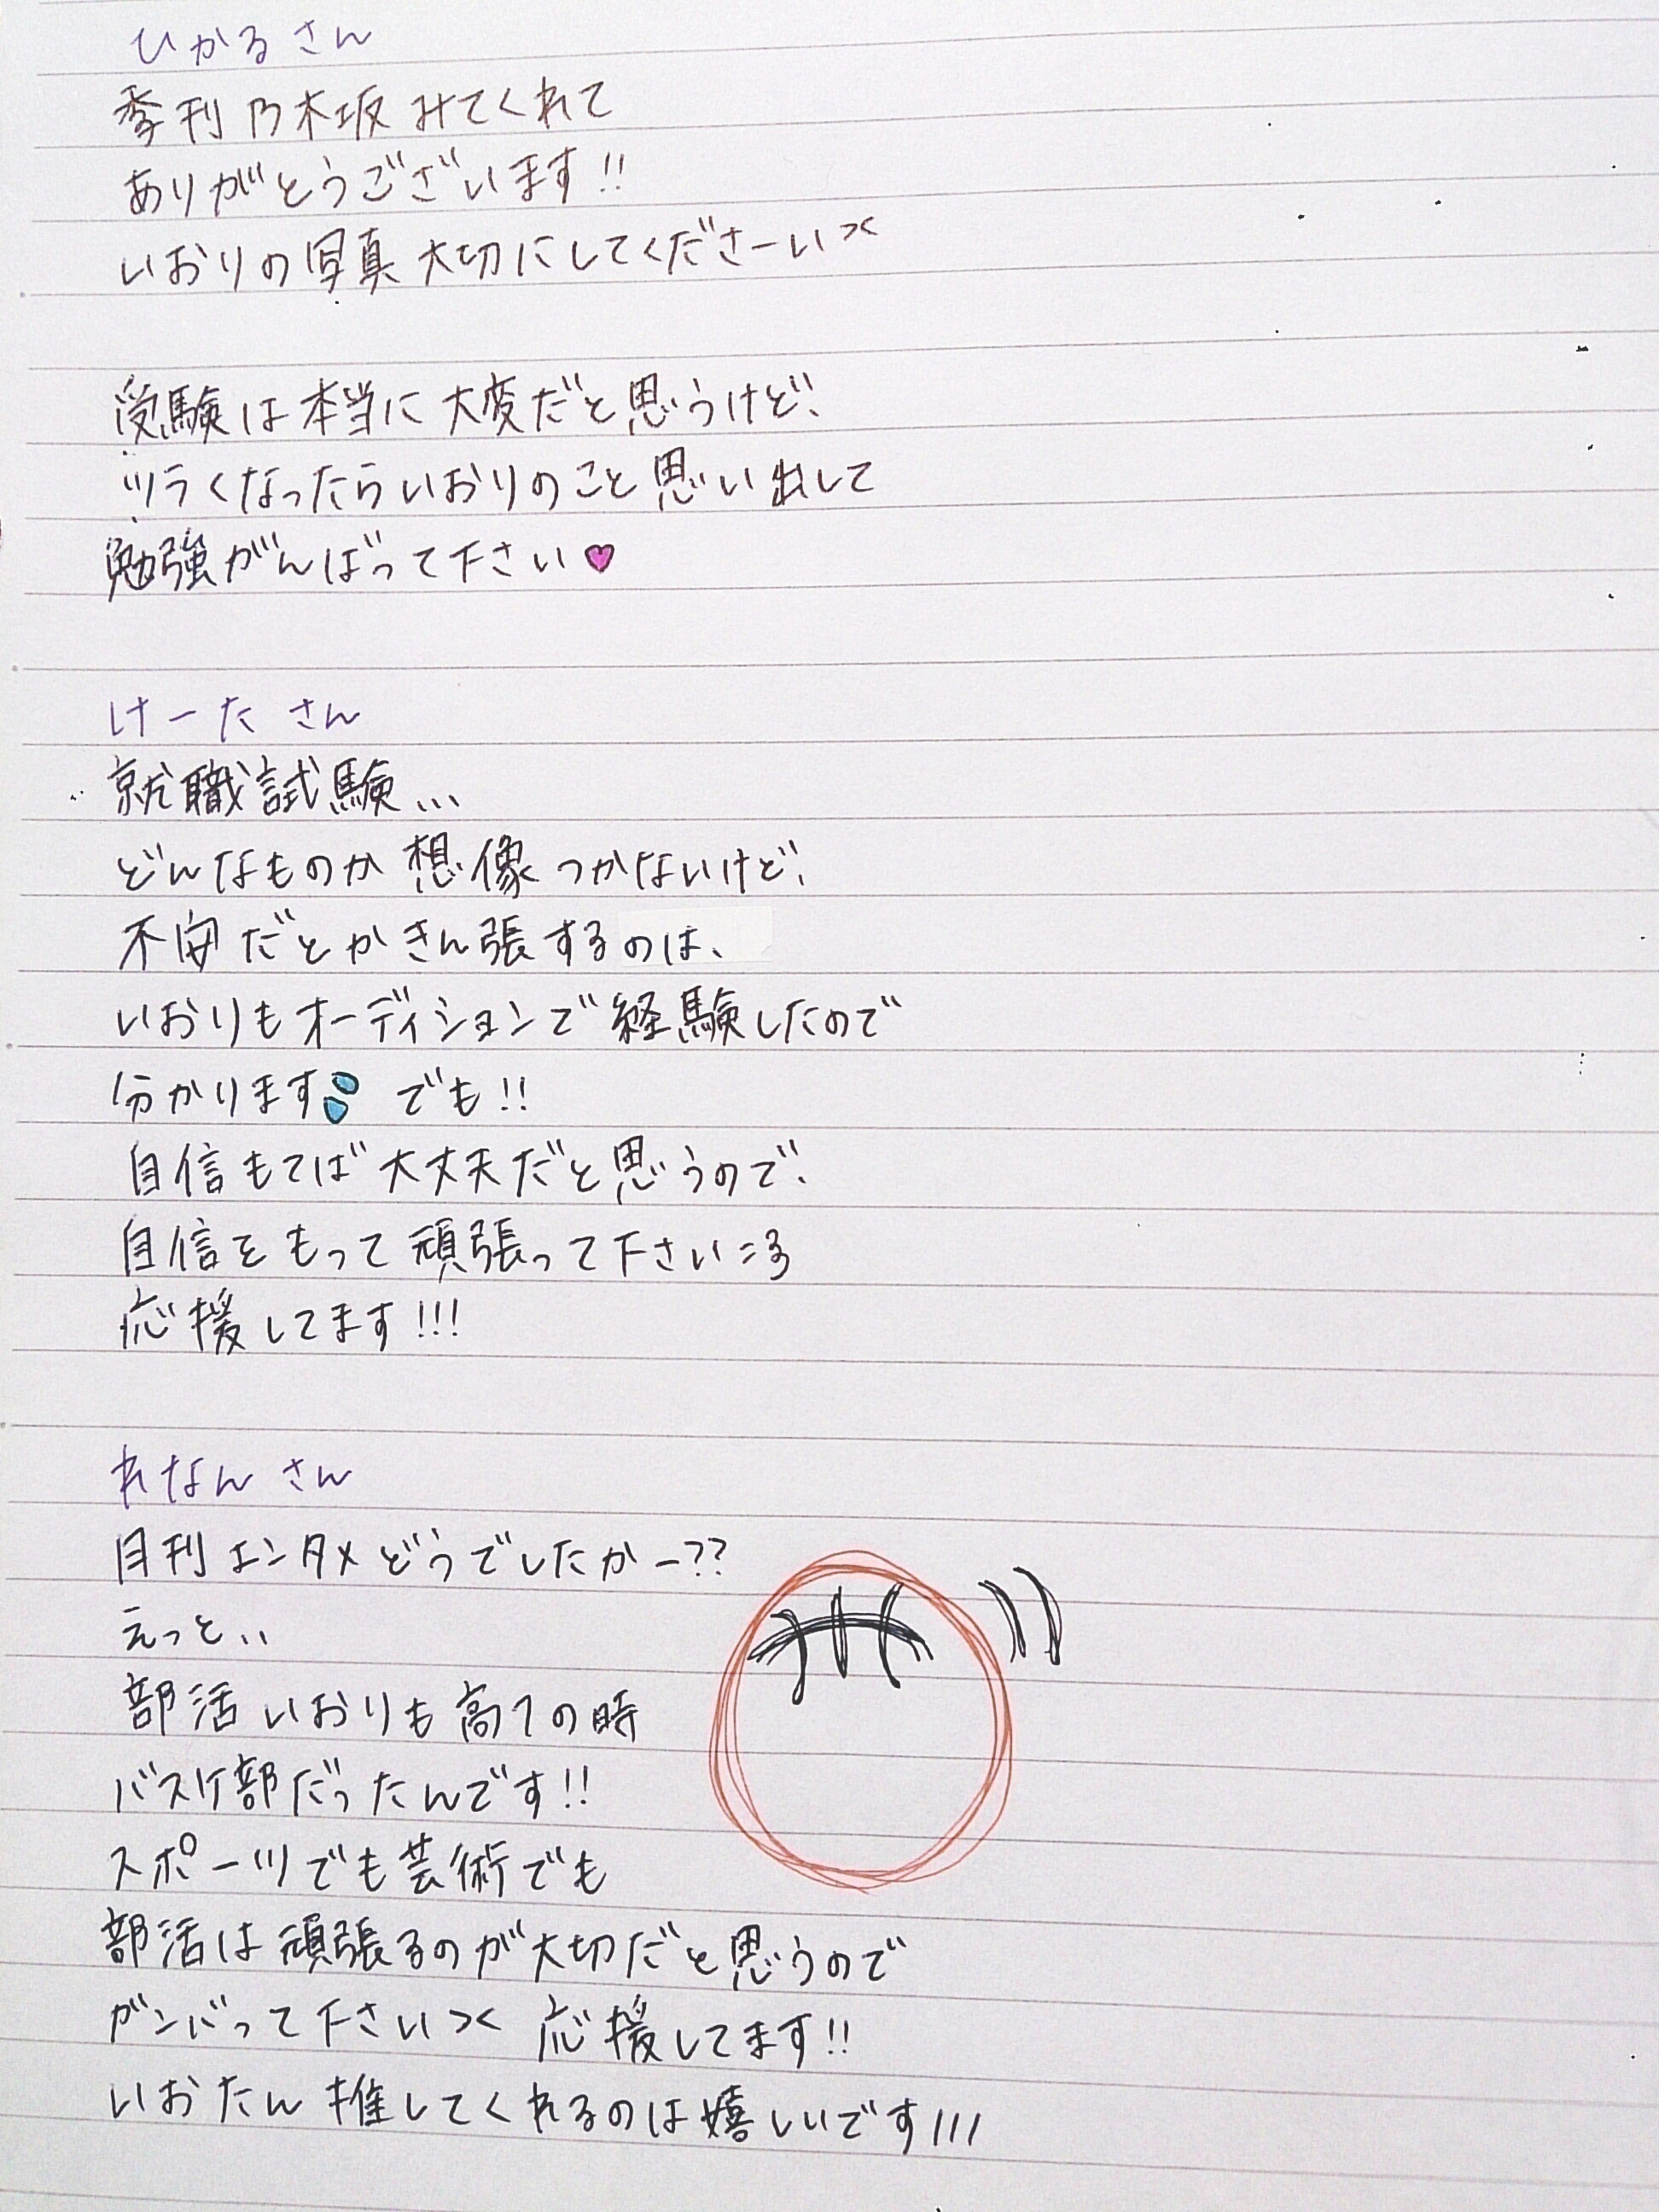 ひかるさん
季刊乃木坂みてくれて
ありがとうございます!!
いおりの写真大切にしてくださーい><
受験は本当に大変だと思うけど、
ツラくなったらいおりのこと思い出して
勉強がんばって下さい♥
けーたさん
就職試験...
どんなものか想像つかないけど、
不安だとかきん張するのは、
いおりもオーディションで経験したので
分かります💦 でも!!
自信もてば大丈夫だと思うので、
自信をもって頑張って下さい=3
応援してます!!!
れなんさん
月刊エンタメどうでしたかー??
えっと、、
部活いおりも高1の時
バスケ部だったんです!!
スポーツでも芸術でも
部活は頑張るのが大切だと思うので
ガンバって下さい>< 応援してます!!
いおたん推してくれるのは嬉しいです///